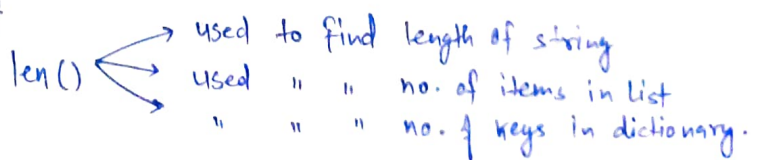 used to find length of string
len() used " " no. of items in list
" " " no. of keys in dictionary.